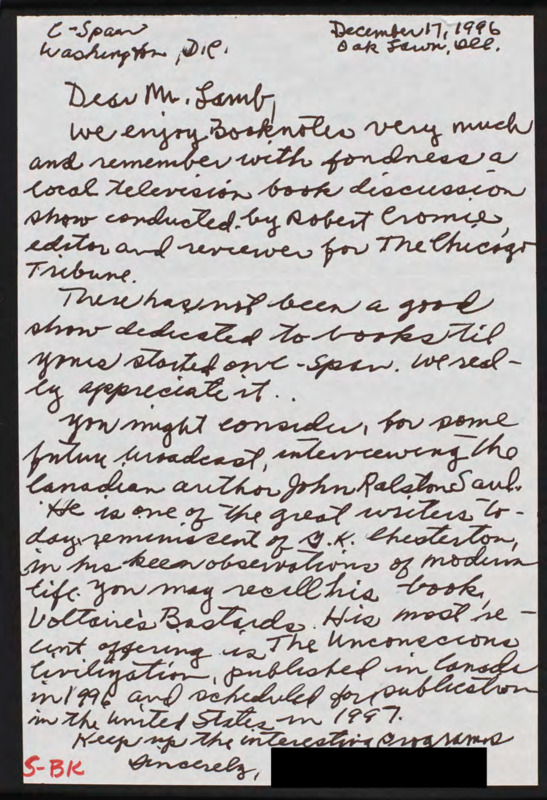 C-Span
Washington, D.C.
December 17, 1996
Oak Lawn, Ill.
Dear Mr. Lamb,
We enjoy Booknotes very much
and remember with fondness a
local television book discussion
show conducted by Robert Cromie,
editor and reviewer for The Chicago
Tribune.
There has not been a good
show dedicated to books til
yours started on C-Span. We real-
ly appreciate it..
You might consider, for some
future broadcast, interviewing the
Canadian author John Ralston Saul.
He is one of the great writers to-
day, reminiscent of G.K. Chesterton,
in his keen observations of modern
life. You may recall his book,
Voltaire's Bastards. His most re-
cent offering is The Unconscious
Civilization, published in Canada
in 1996 and scheduled for publication
in the United States in 1997.
Keep up the interesting programs
Sincerely,
S-BK